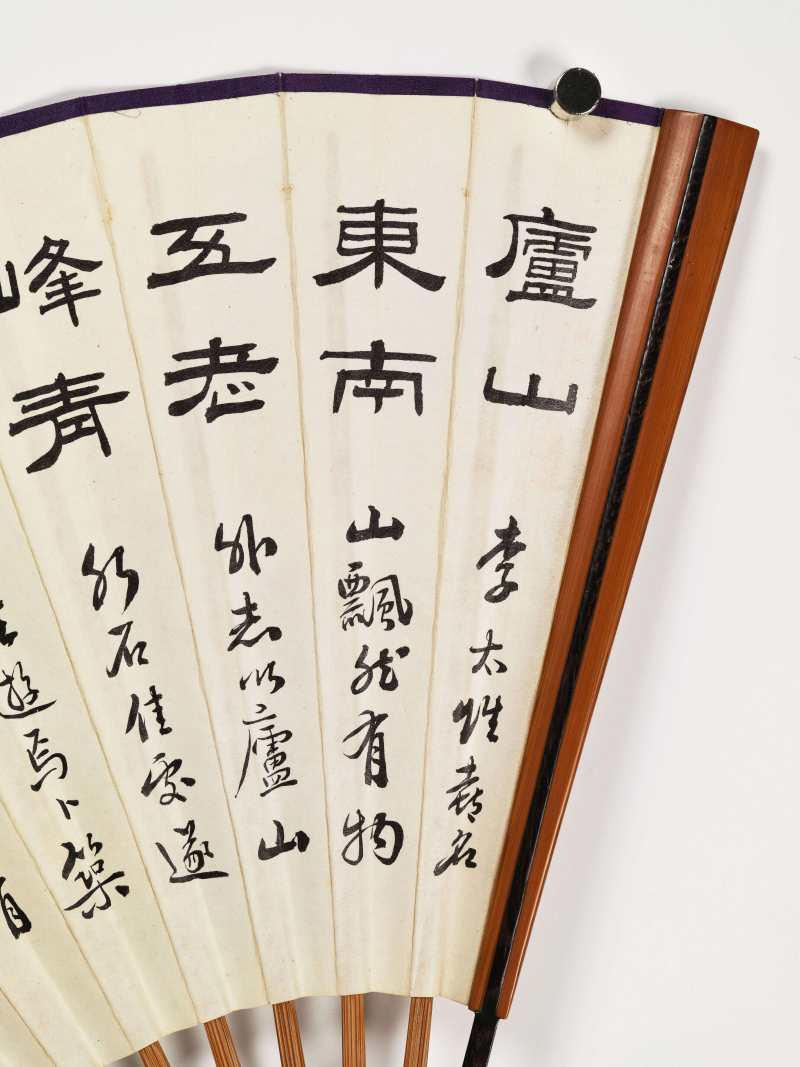 廬山
東南
五老
峰青
李太雅喜名
山飄然有物
外志以廬山
水石佳處遂
遊焉卜築